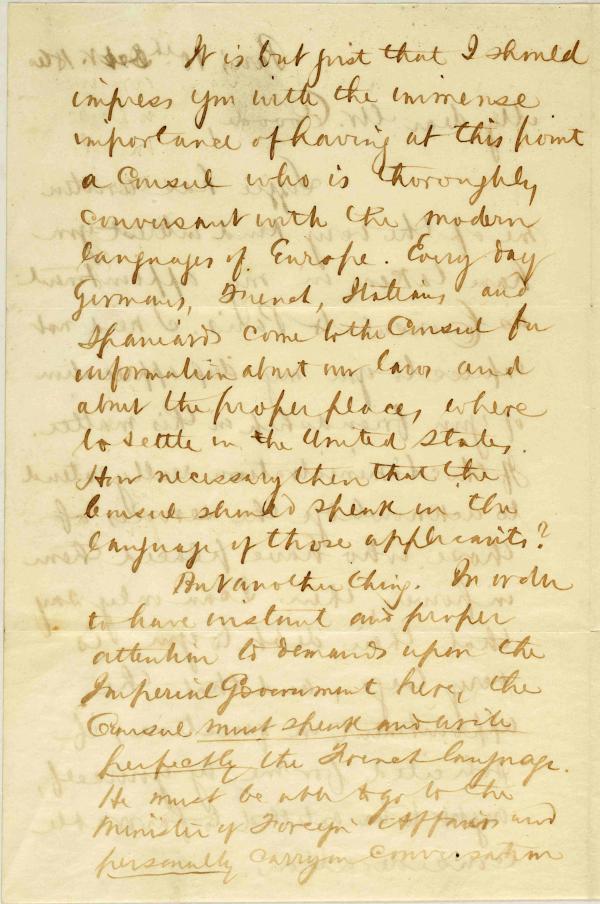 It is but just that I should
impress you with the immense
importance of having at this point
a Consul who is thoroughly
conversant with the modern
languages of Europe. Every day
Germans, French, Italians and
Spaniards come to the Consul for
information about our laws and
about the proper places where
to settle in the United States.
How necessary then that the
Consul should speak in the
language of those applicants?
But another thing. In order
to have instant and proper
attention to demands upon the
Imperial Government here, the
Consul must speak and write
perfectly the French language.
He must be able to go to the
Minister of Foreign Affairs and
personally carry on conversation